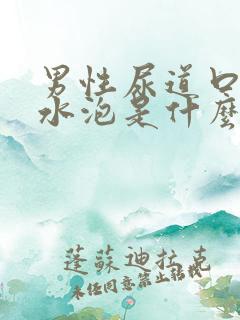 男性尿道口
水泡是什麼
蓬蘇迪拉克
未任同意禁止轉載